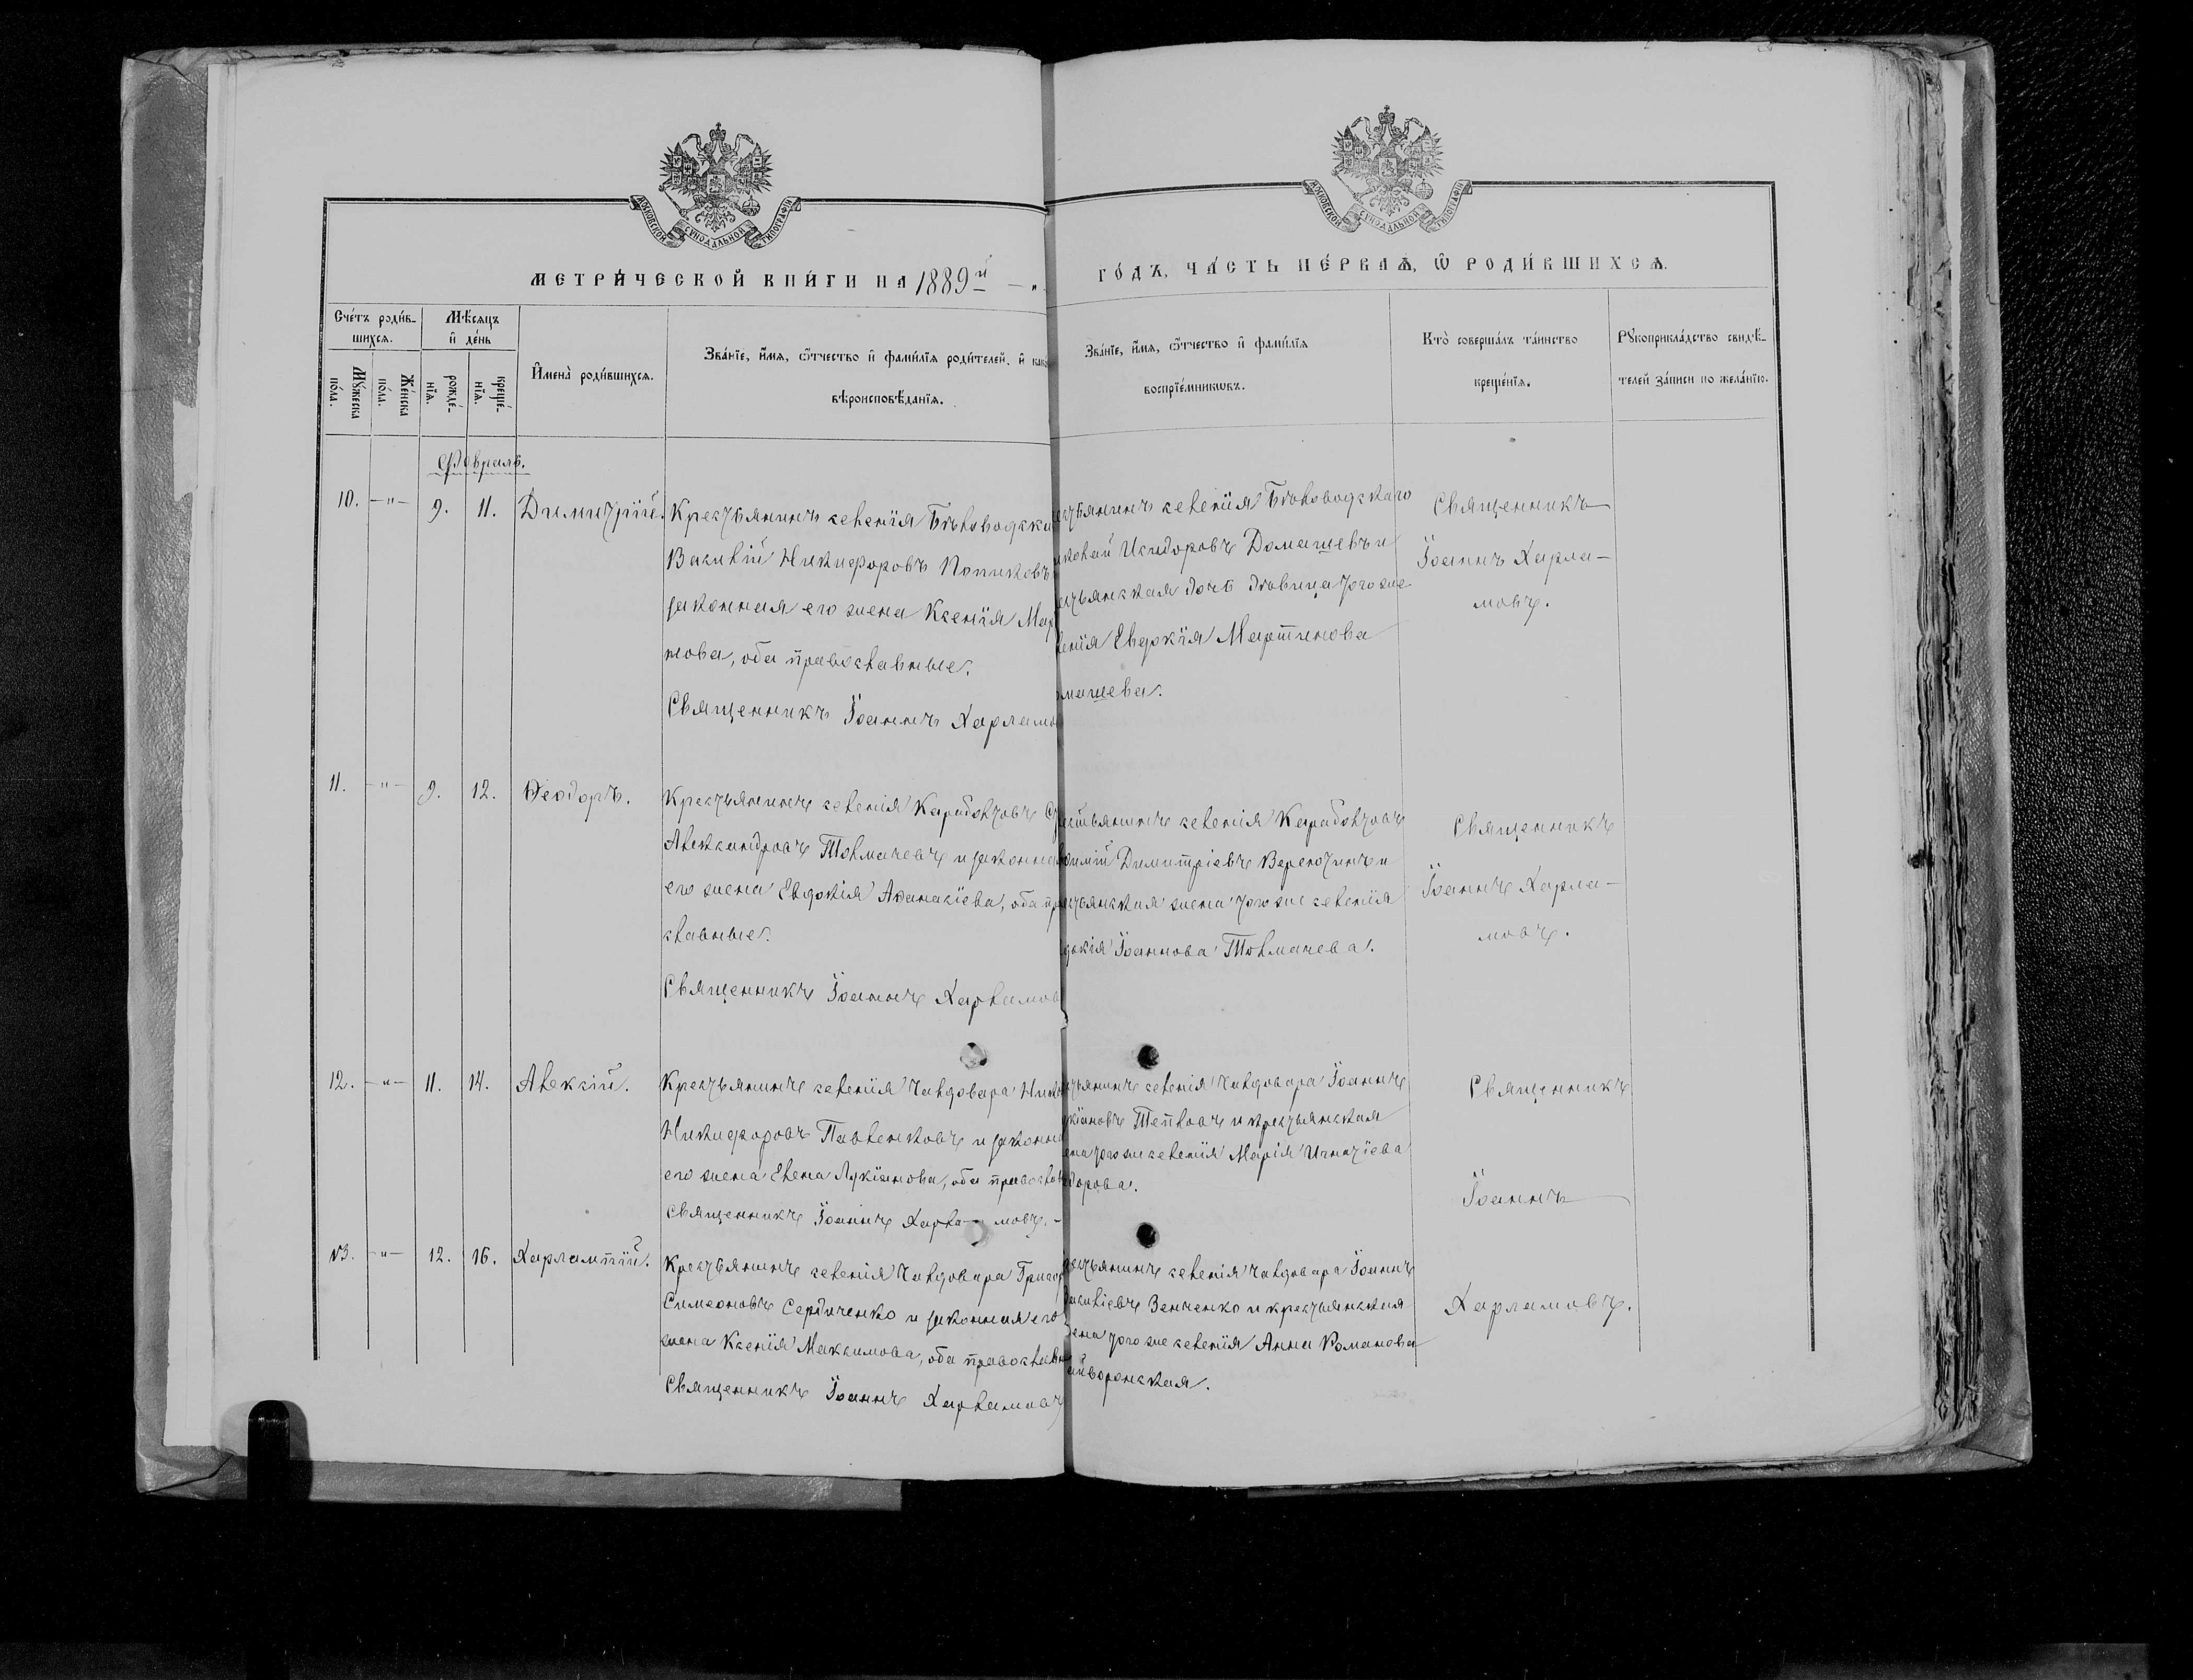 МОСКОВСКОЙ СѴНОДАЛЬНОЙ ТИПОГРАФІИ
МОСКОВСКОЙ СѴНОДАЛЬНОЙ ТИПОГРАФІИ
МЕТРИ́ЧЕСКОЙ КНИ́ГИ НА 1889й
ГО́ДЪ, ЧА́СТЬ ПЕ́РВАѦ, Ѡ РОДИ́ВШИХСѦ.
Сче́тъ роди́в-
шихсѧ.
Мꙋ́жеска
по́ла.
Же́нска
по́ла.
Мѣ́сѧцъ
и҆ де́нь
рожде́-
нїѧ.
креще́-
нїѧ.
И҆мена̀ роди́вшихсѧ.
Зва́нїе, и҆́мѧ, ѻ҆́тчество и҆ фами́лїѧ роди́телей, и҆ како
вѣроисповѣ́данїѧ.
Зва́нїе, и҆́мѧ, ѻ҆́тчество и҆ фами́лїѧ
воспрїе́мникѡвъ.
Кто̀ соверша́лъ та́инство
креще́нїѧ.
Рꙋкоприкла́дство свидѣ́-
телей за́писи по жела́нїю.
Февраль.
10. -"- 9. 11. Димитрій.
Крестьянинъ селенія Бѣловодска
Василій Никифоровъ Попиковъ
законная его жена Ксенія Мар
нова, оба православные.
Священникъ Іоаннъ Харламо
естьянинъ селенія Бѣловодскаго
иколай Исидоровъ Домашевъ и
естьянская дочь дѣвица того же
ленія Евдокія Мартинова
омашева.
Священникъ
Іоаннъ Харла-
мовъ.
11. -"- 9. 12. Ѳеодоръ.
Крестьянинъ селенія Караболтовъ
Александровъ Толмачевъ и законна
его жена Евдокія Аѳанасіева, оба пра
славные.
Священникъ Іоаннъ Харламов
естьянинъ селенія Караболтовъ
Димитріевъ Веретинъ и
естьянская жена того же селенія
докія Іоаннова Толмачева.
Священникъ
Іоаннъ Харла-
мовъ.
12. -"- 11. 14. Алексій.
Крестьянинъ селенія Чалдовара Нико
Никифоровъ Павленковъ и законна
его жена Елена Лукіанова, оба правосла
Священникъ Іоаннъ Харла- мовъ. -
стьянинъ селенія Чалдовара Іоаннъ
кіановъ Тепловъ и крестьянская
ена того же селенія Марія Игнатіева
дорова.
Священникъ
Іоаннъ
Харламовъ.
13. -"- 12. 16. Харлампій.
Крестьянинъ селенія Чалдовара Григор
Симеоновъ Сердиченко и законная его
жена Ксенія Максимова, оба православн
Священникъ Іоаннъ Харламовъ
рестьянинъ селенія Чалдовара Іоаннъ
асиліевъ Зенченко и крестьянская
жена того же селенія Анна Романова
айворонская.